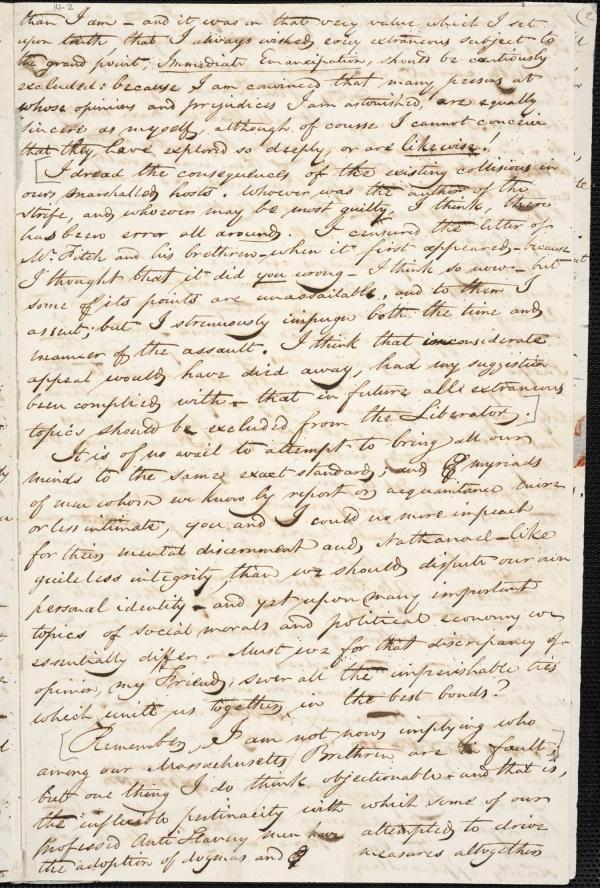 14-2
2
than I am – and it was on that very value which I set
upon truth, that I always wished, every extraneous subject to
the grand point, Immediate Emancipation, should be cautiously
excluded: because I am convinced that many persons at
whose opinions and prejudices I am astonished, are equally
sincere as myself, although of course I cannot conceive
that they have explored so deeply, or are likewise!
[I dread the consequences of the existing collisions in
ours marshalled hosts. Whoever was the author of the
strife, and whosoever may be most guilty, I think, there
has been error all around. I censured the letter of
Mr Fitch and his brethren – when it first appeared – because
I thought that it did you wrong – I think so now – but
some of its points are unassailable, and to them I
assent; but I strenuously impugn both the time and
manner of the assault. I think that inconsiderate
appeal would have died away, had my suggestion
been complied with – that in future all extraneous
topics should be excluded from the Liberator.]
It is of no avail to attempt to bring all our
minds to the same exact standard; and of myriads
of men whom we know by report or acquaintance more
or less intimate, you and I could no more impeach
for their mental discernment and Nathanael-like
guileless integrity, than we should dispute our own
personal identity – and yet upon many important
topics of social morals and political economy we
essentially differ. Must we for that discrepancy of
opinion, my Friend, sever all the imperishable ties
which unite us together in the best bonds?
[Remember, I am not now implying who
among our Massachusetts Brethren are in fault;]
but one thing I do think objectionable – and that is,
the inflexible pertinacity with which some of our
professed Anti Slavery men have attempted to drive
the adoption of dogmas and measures altogether